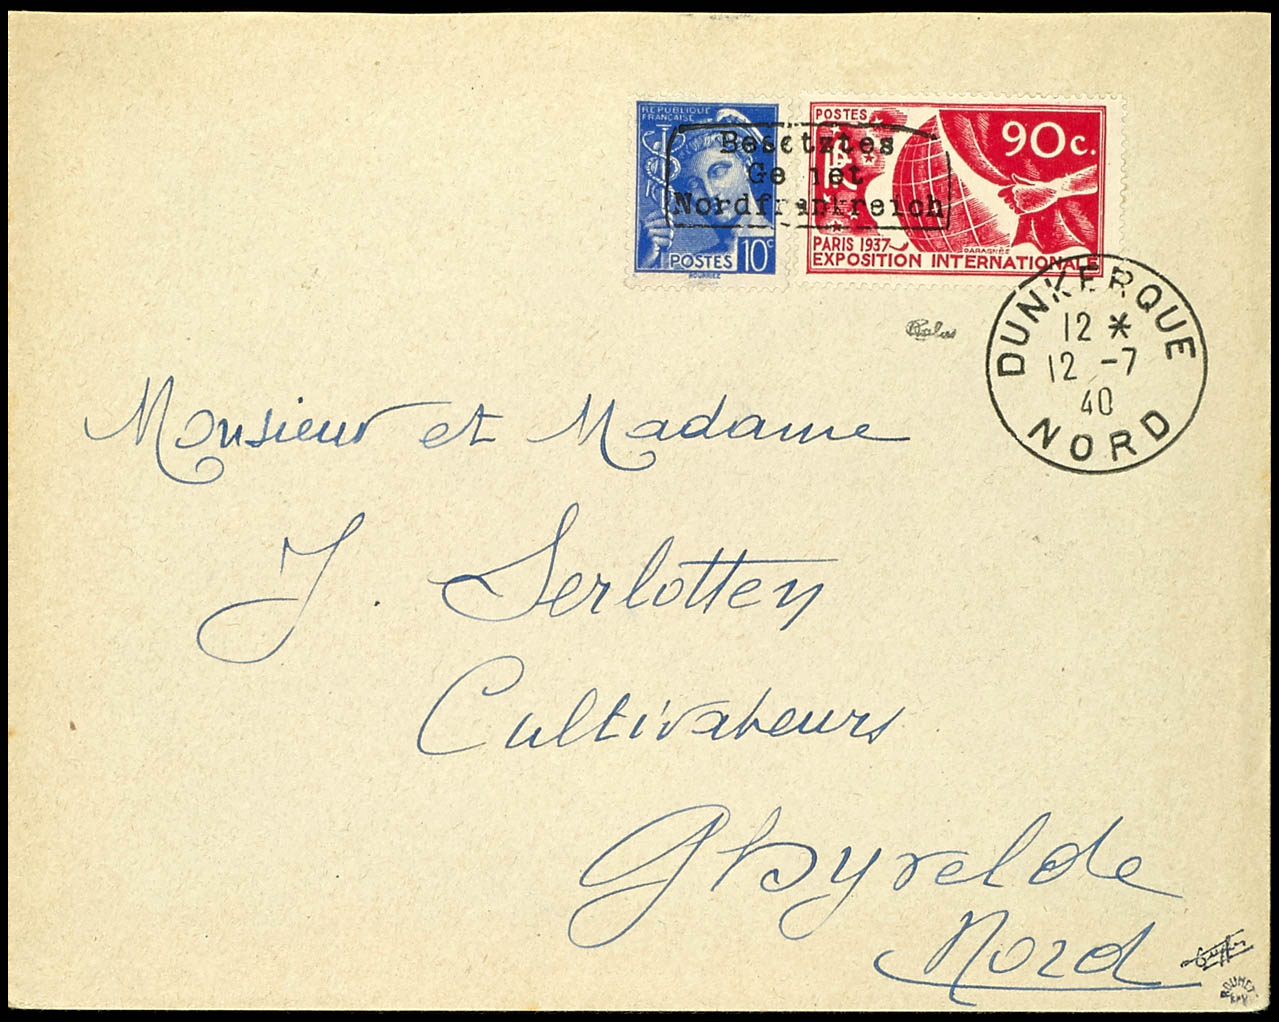 REPUBLIQUE
FRANÇAISE
POSTES 10c
POSTES
90c.
PARIS 1937
EXPOSITION INTERNATIONALE
Besetztes
Gebiet
Nordfrankreich
DUNKERQUE
12 *
12 -7
40
NORD
Monsieur et Madame
J. Serlotten
Cultivateurs
Ghyvelde
Nord